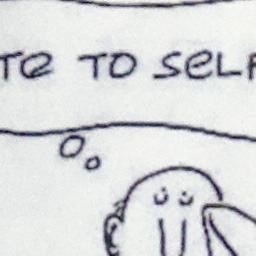 TE TO SELF